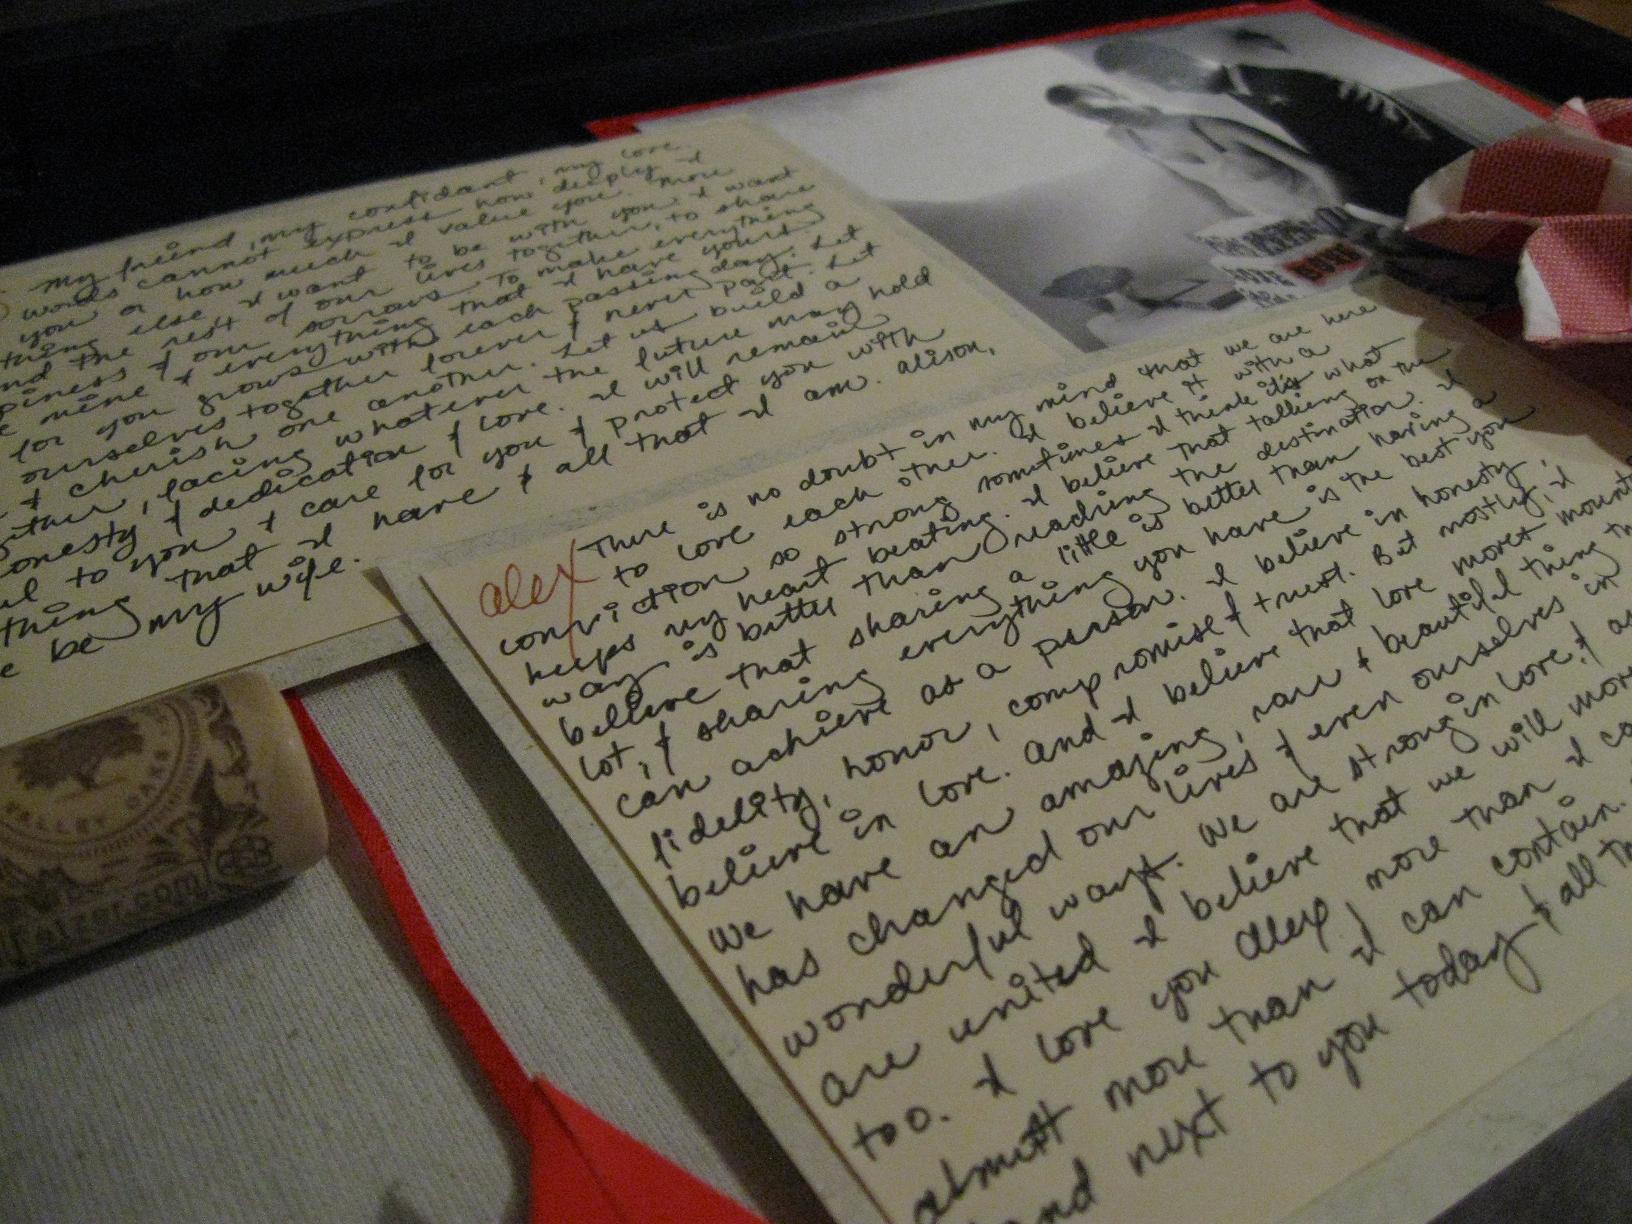 my friend, my confidant, my love.
words cannot express how deeply I
you or how much I value you. More
thing else I want to be with you. I want
the rest of our lives together, to share
our sorrows. To make everything
mine & everything that I have yours
for you grows with each passing day. Let
ourselves together forever & never part. Let
& cherish one another. Let us build a
facing whatever the future may hold
honesty & dedication & love. I will remain
to you & care for you & protect you with
thing that I have & all that I am. Alison,
be my wife.
alex
There is no doubt in my mind that we are here
to love each other. I believe it with a
conviction so strong sometimes I think it's what
keeps my heart beating. I believe that talking on the
way is better than reaching the destination. I
believe that sharing a little is better than having a
lot, & sharing everything you have is the best you
can achieve as a person. I believe in honesty,
fidelity, honor, compromise & trust. But mostly, I
believe in love. And I believe that love moves
we have an amazing, rare & beautiful thing
has changed our lives & even ourselves in
wonderful ways. We are strong in love. &
are united I believe that we will
too. I love you Alex, more than I
almost more than I can contain.
and next to you today, & all
VALLEY OAKS
Fetzer.com